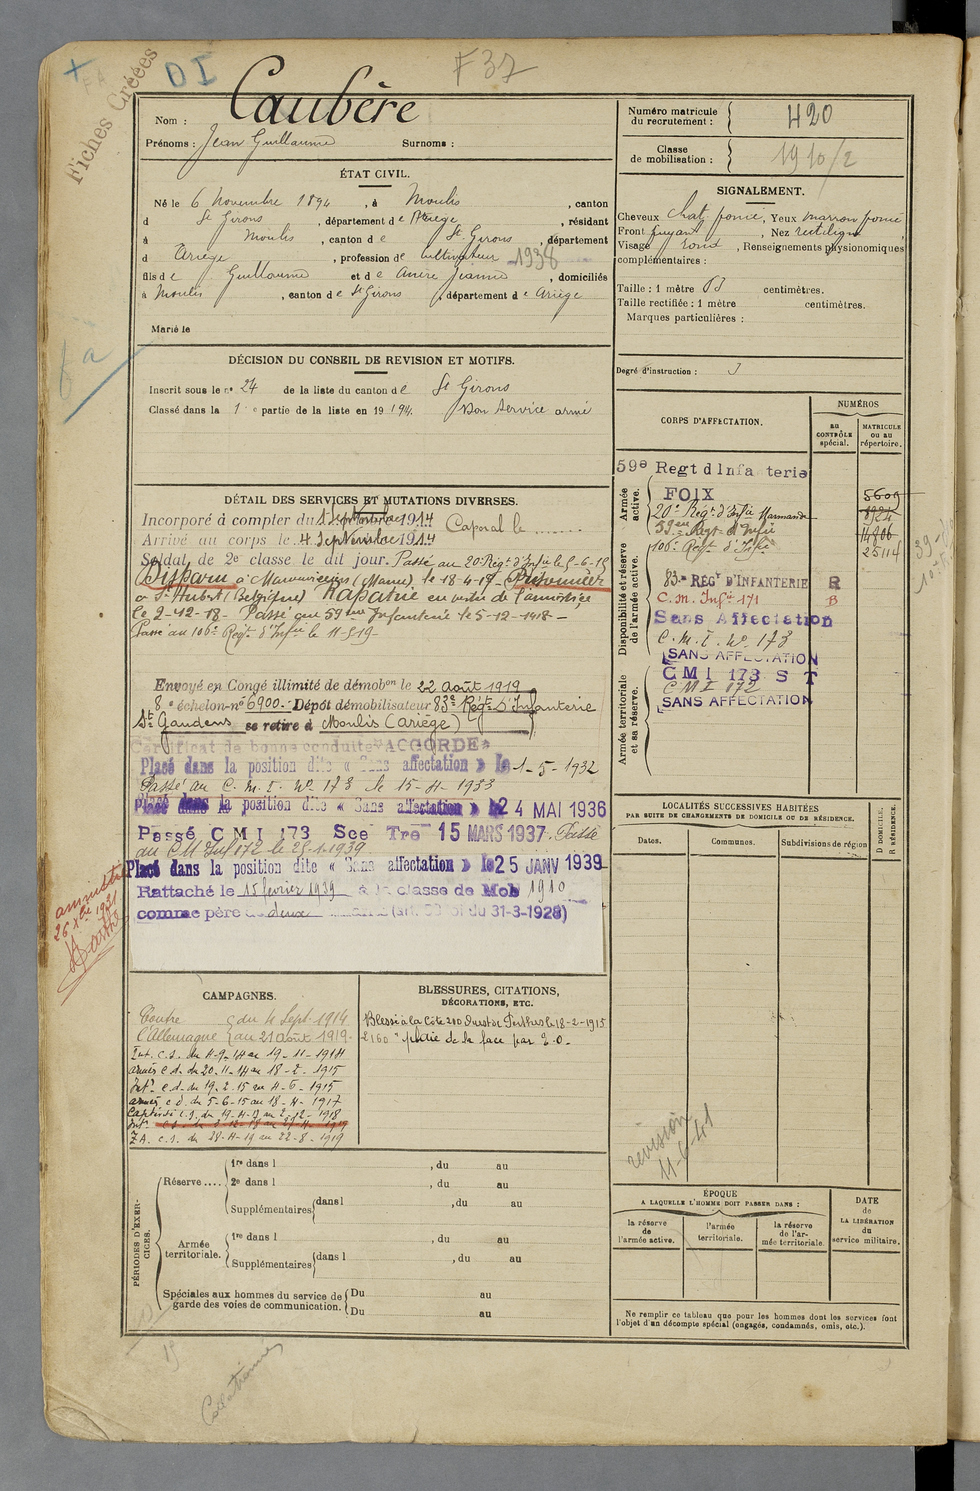 Fiches Créées
DI
F 37
Nom : Caubère
Prénoms : Jean Guillaume Surnoms :
Numéro matricule du recrutement : 420
Classe de mobilisation : 1910/2
ÉTAT CIVIL.
Né le 6 Novembre 1894, à Moulis, canton
d St Girons, département de Ariège, résidant
à Moulis, canton de St Girons, département
d Ariège, profession de cultivateur 1938
fils de Guillaume et de Anère Jeanne, domiciliés
à Moulis, canton de St Girons, département de Ariège
Marié le
SIGNALEMENT.
Cheveux chat. foncé, Yeux marron foncé
Front fuyant, Nez rectiligne
Visage rond, Renseignements physionomiques
complémentaires :
Taille : 1 mètre 63 centimètres.
Taille rectifiée : 1 mètre centimètres.
Marques particulières :
Degré d'instruction : 3
DÉCISION DU CONSEIL DE REVISION ET MOTIFS.
Inscrit sous le n° 24 de la liste du canton de St Girons
Classé dans la 1e partie de la liste en 1914. Bon Service armé
DÉTAIL DES SERVICES ET MUTATIONS DIVERSES.
Incorporé à compter du 1 Septembre 1914 Caporal le
Arrivé au corps le 4 Septembre 1914
Soldat de 2e classe le dit jour. Passé au 20e Régt d'Infie le 5-6-15
Disparu à (Marne), le 18-4-17 - Prisonnier
à St Hubert (Belgique) Rapatrié en vertu de l'armistice
le 2-12-18 - Passé au 59eme Infanterie le 5-12-1918 -
Passé au 106e Régt d'Infie le 11-3-19 -
Envoyé en Congé illimité de démobon le 22 août 1919
8e échelon n° 6900. - Dépôt démobilisateur 83e Régt d'Infanterie
St Gaudens se retire à Moulis (Ariège)
Certificat de bonne conduite "ACCORDÉ"
Placé dans la position dite « Sans affectation » le 1-5-1932
Passé au C. M. I. N° 173 le 15-4-1933
Placé dans la position dite « Sans affectation » le 24 MAI 1936
Passé CMI 173 Sce Tre 15 MARS 1937. Passé
au CM Inf 172 le 25-1-1939
Placé dans la position dite « Sans affectation » le 25 JANV 1939
Rattaché le 15 février 1939 à la classe de Mob 1910
comme père de deux (art. 58 loi du 31-3-1928)
amnistie
26 Xbre 1931
CORPS D'AFFECTATION.
NUMÉROS
au CONTRÔLE spécial.
MATRICULE ou au répertoire.
Armée active.
59e Regt d Infanterie
FOIX 5609
20e Régt d'Infie Marmande 8924
59eme Régt d'Infie 14806
106e Régt d'Infie 25114
Disponibilité et réserve de l'armée active.
83e REGt D'INFANTERIE R
C. M. Infie 171 B
Sans Affectation
C. M. I. N° 173
SANS AFFECTATION
Armée territoriale et sa réserve.
CMI 173 S T
CMI 172
SANS AFFECTATION
LOCALITÉS SUCCESSIVES HABITÉES
PAR SUITE DE CHANGEMENTS DE DOMICILE OU DE RÉSIDENCE.
Dates.
Communes.
Subdivisions de région
D DOMICILE.
R RÉSIDENCE.
CAMPAGNES.
Contre du 4 Sept. 1914
l'Allemagne au 21 août 1919.
Int. c.s. du 4-9-14 au 19-11-1914
armées c.d. du 20-11-14 au 18-2-1915
Intr c.s. du 19-2-15 au 4-6-1915
armées c.d. du 5-6-15 au 18-4-1917
Captivité c.s. du 19-4-17 au 2-12-1918
Z.A. c.s. du 28-4-19 au 22-8-1919
BLESSURES, CITATIONS,
DÉCORATIONS, ETC.
Blessé à la Côte 200 Ouest de Perthes le 18-2-1915
plaie de la face par E.O.
révision
11-6-41
PÉRIODES D'EXERCICES.
Réserve ....
1re dans l , du au
2e dans l , du au
Supplémentaires dans l , du au
Armée territoriale.
1re dans l , du au
Supplémentaires dans l , du au
Spéciales aux hommes du service de garde des voies de communication. Du au
Du au
ÉPOQUE
A LAQUELLE L'HOMME DOIT PASSER DANS :
la réserve de l'armée active.
l'armée territoriale.
la réserve de l'armée territoriale.
DATE de LA LIBÉRATION du service militaire.
Ne remplir ce tableau que pour les hommes dont les services font
l'objet d'un décompte spécial (engagés, condamnés, omis, etc.).